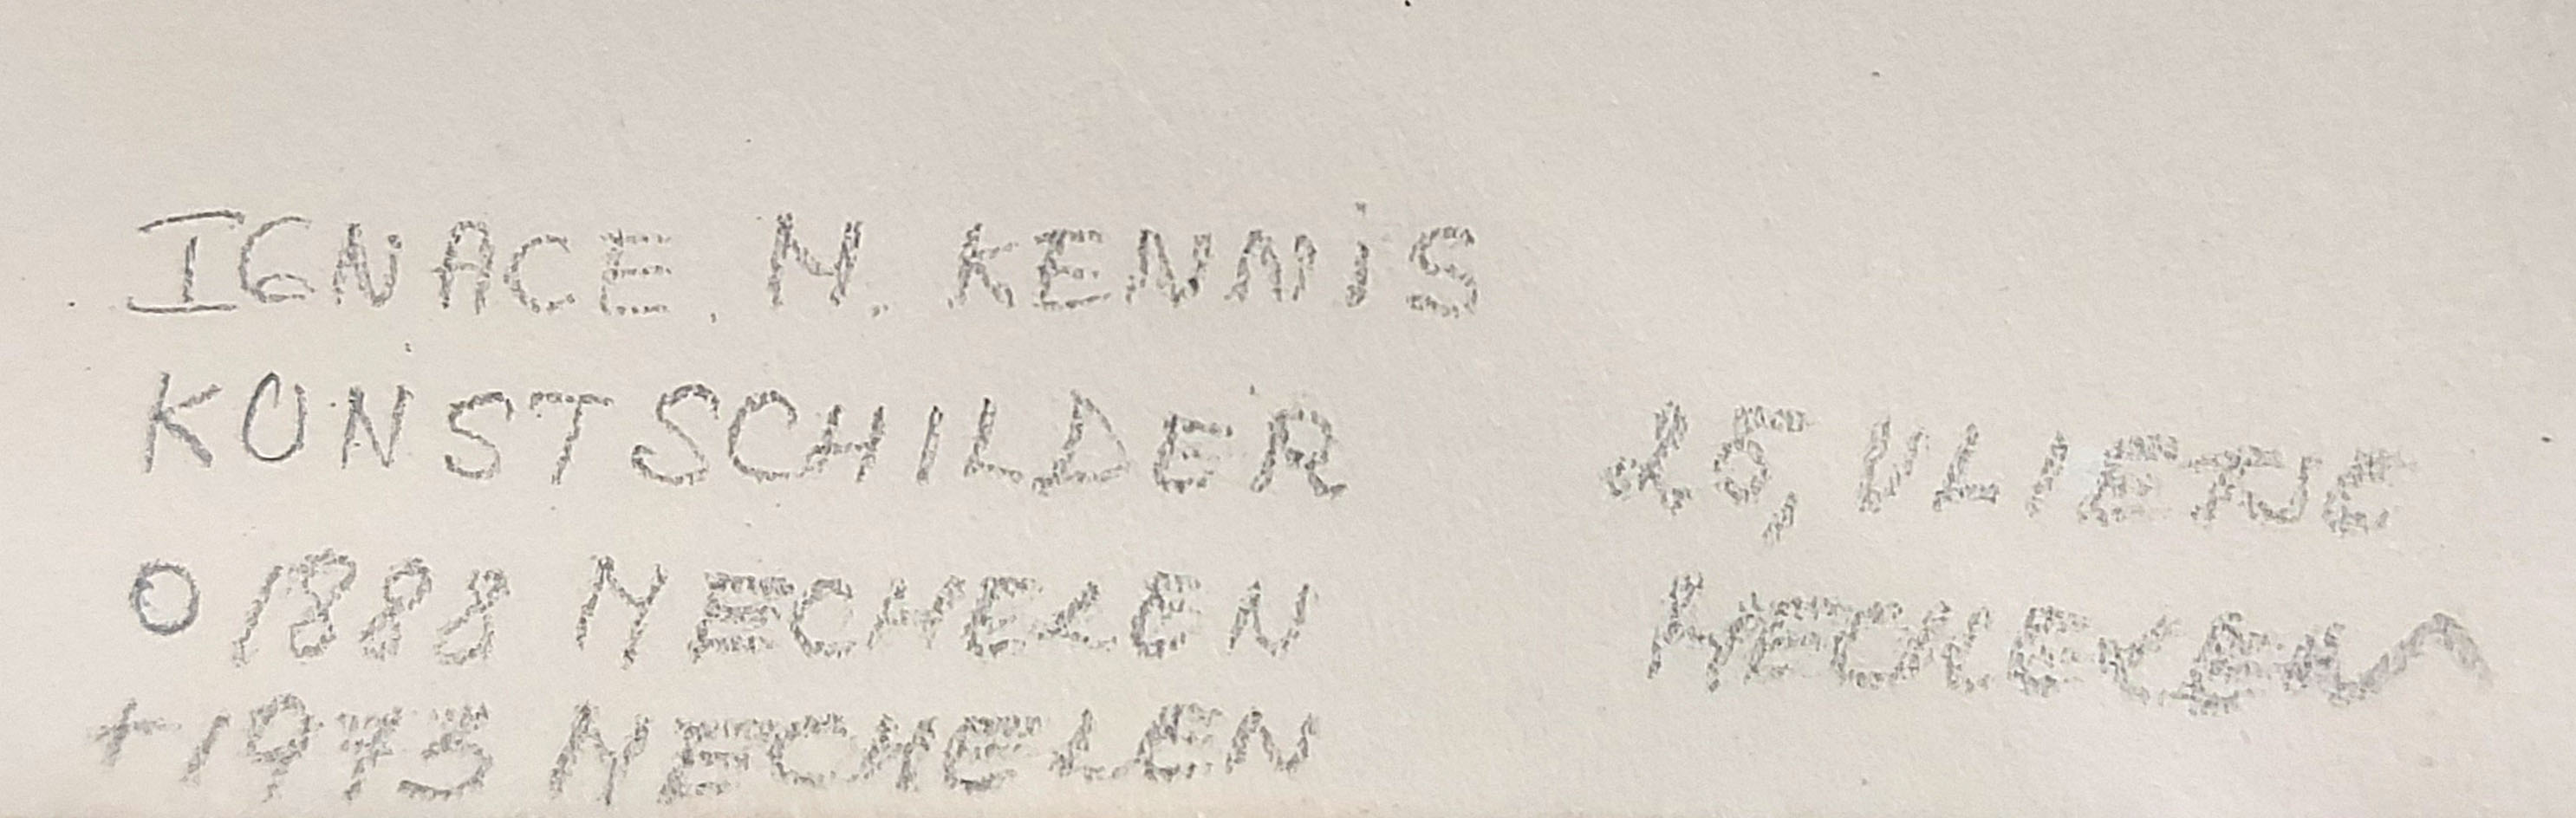 IGNACE. M. KENNIS
KUNSTSCHILDER
O 1888 MECHELEN
+ 1973 MECHELEN
25, VLIETJE
MECHELEN